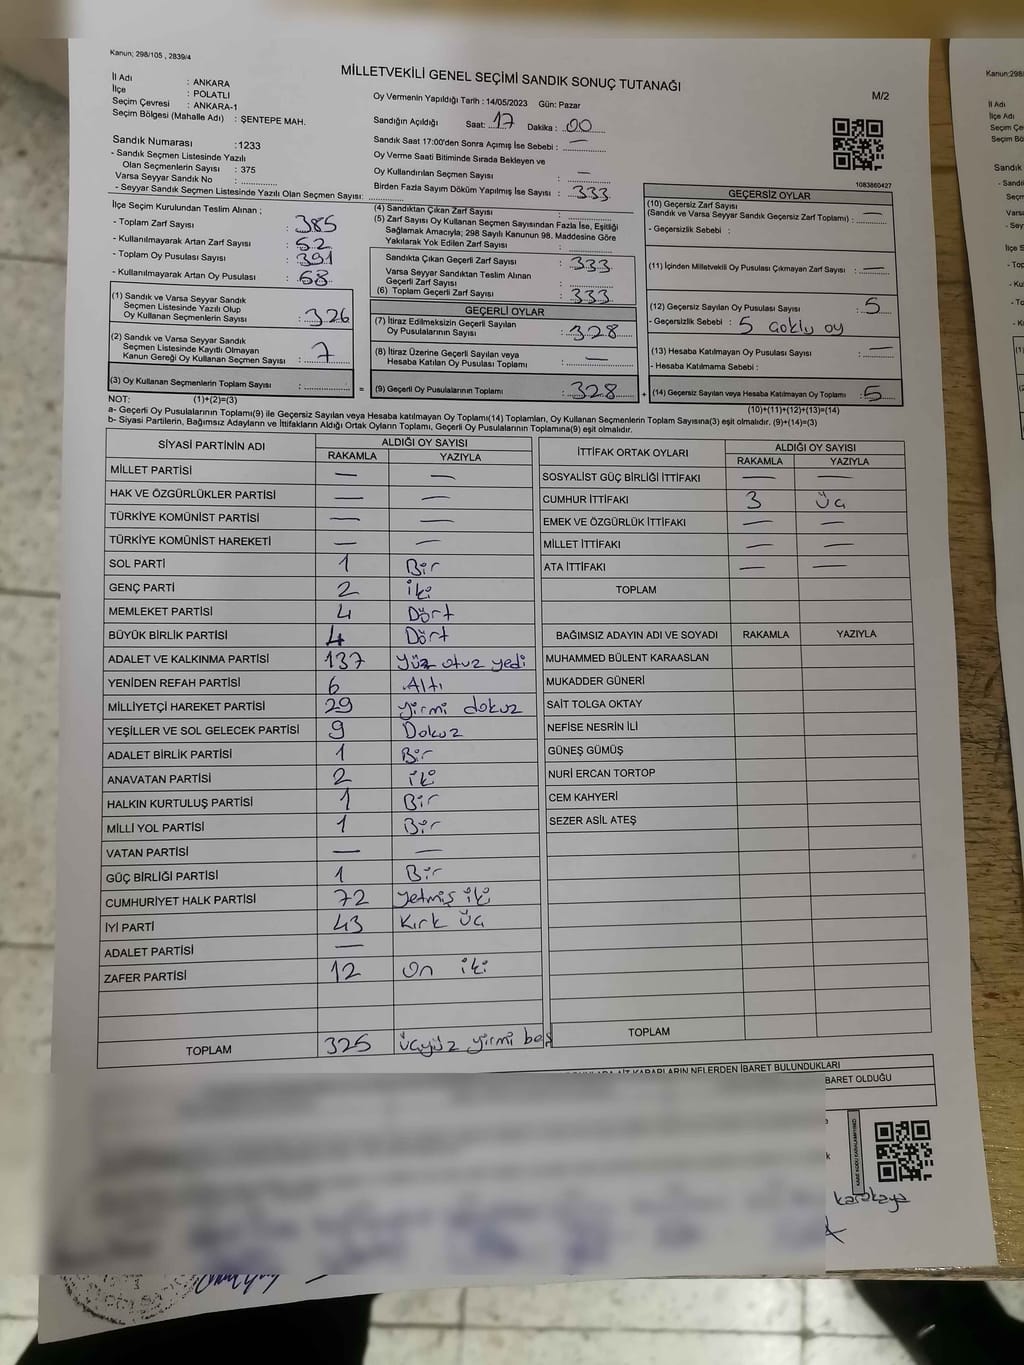 Kanun; 298/105 , 2839/4
MİLLETVEKİLİ GENEL SEÇİMİ SANDIK SONUÇ TUTANAĞI
M/2
İl Adı : ANKARA
İlçe : POLATLI
Seçim Çevresi : ANKARA-1
Seçim Bölgesi (Mahalle Adı) : ŞENTEPE MAH.
Oy Vermenin Yapıldığı Tarih : 14/05/2023 Gün: Pazar
Sandığın Açıldığı Saat: 17 Dakika : 00
Sandık Saat 17:00'den Sonra Açımış İse Sebebi : —
Oy Verme Saati Bitiminde Sırada Bekleyen ve
Oy Kullandırılan Seçmen Sayısı : —
Birden Fazla Sayım Döküm Yapılmış İse Sayısı : 333
1083860427
Sandık Numarası :1233
- Sandık Seçmen Listesinde Yazılı
Olan Seçmenlerin Sayısı : 375
Varsa Seyyar Sandık No :
- Seyyar Sandık Seçmen Listesinde Yazılı Olan Seçmen Sayısı:
İlçe Seçim Kurulundan Teslim Alınan ;
- Toplam Zarf Sayısı : 385
- Kullanılmayarak Artan Zarf Sayısı : 52
- Toplam Oy Pusulası Sayısı : 391
- Kullanılmayarak Artan Oy Pusulası : 68
(1) Sandık ve Varsa Seyyar Sandık
Seçmen Listesinde Yazılı Olup
Oy Kullanan Seçmenlerin Sayısı : 326
(2) Sandık ve Varsa Seyyar Sandık
Seçmen Listesinde Kayıtlı Olmayan
Kanun Gereği Oy Kullanan Seçmen Sayısı : 7
(3) Oy Kullanan Seçmenlerin Toplam Sayısı :
(4) Sandıktan Çıkan Zarf Sayısı :
(5) Zarf Sayısı Oy Kullanan Seçmen Sayısından Fazla İse, Eşitliği
Sağlamak Amacıyla; 298 Sayılı Kanunun 98. Maddesine Göre
Yakılarak Yok Edilen Zarf Sayısı :
Sandıkta Çıkan Geçerli Zarf Sayısı : 333
Varsa Seyyar Sandıktan Teslim Alınan
Geçerli Zarf Sayısı :
(6) Toplam Geçerli Zarf Sayısı : 333
GEÇERLİ OYLAR
(7) İtiraz Edilmeksizin Geçerli Sayılan
Oy Pusulalarının Sayısı : 328
(8) İtiraz Üzerine Geçerli Sayılan veya
Hesaba Katılan Oy Pusulası Toplamı : —
= (9) Geçerli Oy Pusulalarının Toplamı : 328
GEÇERSİZ OYLAR
(10) Geçersiz Zarf Sayısı
(Sandık ve Varsa Seyyar Sandık Geçersiz Zarf Toplamı) : —
- Geçersizlik Sebebi :
(11) İçinden Milletvekili Oy Pusulası Çıkmayan Zarf Sayısı : —
(12) Geçersiz Sayılan Oy Pusulası Sayısı : 5
- Geçersizlik Sebebi : 5 Çoklu oy
(13) Hesaba Katılmayan Oy Pusulası Sayısı : —
- Hesaba Katılmama Sebebi :
+ (14) Geçersiz Sayılan veya Hesaba Katılmayan Oy Toplamı : 5
NOT: (1)+(2)=(3) (10)+(11)+(12)+(13)=(14)
a- Geçerli Oy Pusulalarının Toplamı(9) ile Geçersiz Sayılan veya Hesaba Katılmayan Oy Toplamı(14) Toplamları, Oy Kullanan Seçmenlerin Toplam Sayısına(3) eşit olmalıdır. (9)+(14)=(3)
b- Siyasi Partilerin, Bağımsız Adayların ve İttifakların Aldığı Ortak Oyların Toplamı, Geçerli Oy Pusulalarının Toplamına(9) eşit olmalıdır.
SİYASİ PARTİNİN ADI ALDIĞI OY SAYISI
RAKAMLA YAZIYLA
MİLLET PARTİSİ — —
HAK VE ÖZGÜRLÜKLER PARTİSİ — —
TÜRKİYE KOMÜNİST PARTİSİ — —
TÜRKİYE KOMÜNİST HAREKETİ — —
SOL PARTİ 1 Bir
GENÇ PARTİ 2 iki
MEMLEKET PARTİSİ 4 Dört
BÜYÜK BİRLİK PARTİSİ 4 Dört
ADALET VE KALKINMA PARTİSİ 137 Yüz otuz yedi
YENİDEN REFAH PARTİSİ 6 Altı
MİLLİYETÇİ HAREKET PARTİSİ 29 yirmi dokuz
YEŞİLLER VE SOL GELECEK PARTİSİ 9 Dokuz
ADALET BİRLİK PARTİSİ 1 Bir
ANAVATAN PARTİSİ 2 iki
HALKIN KURTULUŞ PARTİSİ 1 Bir
MİLLİ YOL PARTİSİ 1 Bir
VATAN PARTİSİ — —
GÜÇ BİRLİĞİ PARTİSİ 1 Bir
CUMHURİYET HALK PARTİSİ 72 yetmiş iki
İYİ PARTİ 43 Kırk Üç
ADALET PARTİSİ —
ZAFER PARTİSİ 12 On iki
TOPLAM 325 Üçyüz yirmi beş
İTTİFAK ORTAK OYLARI ALDIĞI OY SAYISI
RAKAMLA YAZIYLA
SOSYALİST GÜÇ BİRLİĞİ İTTİFAKI — —
CUMHUR İTTİFAKI 3 Üç
EMEK VE ÖZGÜRLÜK İTTİFAKI — —
MİLLET İTTİFAKI — —
ATA İTTİFAKI — —
TOPLAM
BAĞIMSIZ ADAYIN ADI VE SOYADI RAKAMLA YAZIYLA
MUHAMMED BÜLENT KARAASLAN
MUKADDER GÜNERİ
SAİT TOLGA OKTAY
NEFİSE NESRİN İLİ
GÜNEŞ GÜMÜŞ
NURİ ERCAN TORTOP
CEM KAHYERİ
SEZER ASİL ATEŞ
TOPLAM
KARARLARIN NELERDEN İBARET BULUNDUKLARI
BARET OLDUĞU
karakaya